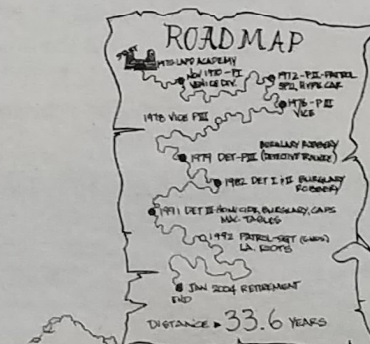 ROAD MAP
START
1970 LAPD ACADEMY
NOV 1970 - PI
VENICE DIV.
1972 - P.II - PATROL
SPII, HYPE CAR
1976 - P III
VICE
1978 VICE P III
BURGLARY ROBBERY
1979 DET-PIII (DETECTIVE TRAINEE)
1982 DET I + II BURGLARY
ROBBERY
1991 DET III HOMICIDE, BURGLARY, CAPS
MAC. TABLES
1992 PATROL-SGT
L.A. RIOTS
JAN 2004 RETIREMENT
END
DISTANCE ► 33.6 YEARS